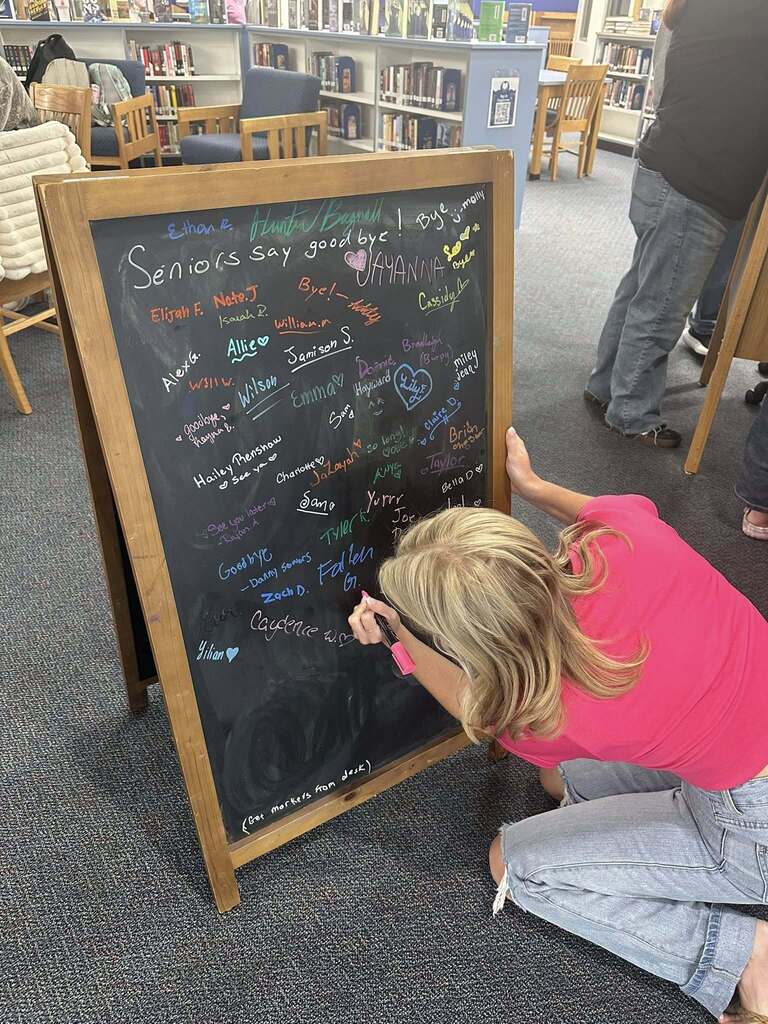 Ethan R.
Hunter Bagnall
Bye :) molly
Seniors say goodbye!
JAYANNA
Elijah F.
Nate J
Isaiah R.
Bye! -
Cassidy
Allie
William.M
Jamison S.
Alex G.
Will W.
Wilson
Emma
Donnie
Hayward
Brooklyn
Lily F.
miley
jean
goodbye
Sam
Claire D.
Hailey Renshaw
see ya
Charlotte
JaZayah
so long!
Taylor
Bella D
Sam
Yurrr
Joe
See you later
Tyler R.
Goodbye
-Danny somors
Fallen
G.
Zach D.
Caydence W.
Yilian
(Get markers from desk)